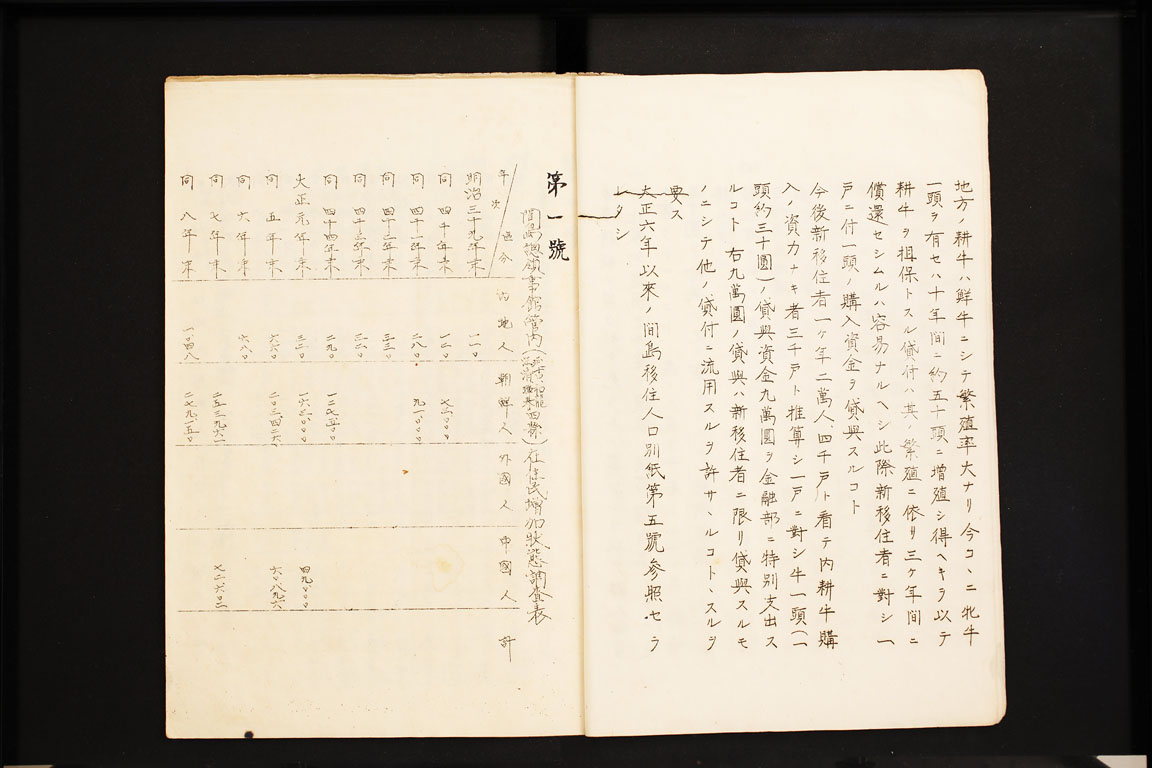 地方ノ耕牛ハ鮮牛ニシテ繁殖率大ナリ今コヽニ牝牛
一頭ヲ有セハ十年間ニ約五十頭ニ増殖シ得ヘキヲ以テ
耕牛ヲ担保トスル貸付ハ其ノ繁殖ニ依リ三ケ年間ニ
償還セシムルハ容易ナルヘシ此際新移住者ニ對シ一
戸ニ付一頭ノ購入資金ヲ貸與スルコト
今後新移住者一ケ年二萬人、四千戸ト看テ内耕牛購
入ノ資力ナキ者三千戸ト推算シ一戸ニ對シ牛一頭(一
頭約三十圓)ノ貸與資金九萬圓ヲ金融部ニ特別支出ス
ルコト 右九萬圓ノ貸與ハ新移住者ニ限リ貸與スルモ
ノニシテ他ノ貸付ニ流用スルヲ許サヽルコトヽスルヲ
要ス
大正六年以來ノ間島移住人口別紙第五號参照セラ
レタシ
第一號
間島總領事館管内
住民増加狀態調査表
年次 區分 内地人 朝鮮人 外國人 中國人 計
明治三十九年末 一一〇
同 四十年末 一二〇 七二、〇〇〇
同 四十一年末 二八〇 九一、〇〇〇
同 四十二年末
同 四十三年末
同 四十四年末 二九〇 一二七、五〇〇
大正元年末 三二〇 一六三、〇〇〇 四九、〇〇〇
同 五年末 六六〇 二〇三、四二六 六〇、八九六
同 六年末 六八〇
同 七年末 二五三、九六一 七二、六〇二
同 八年末 一、〇四八 二七九、一五〇